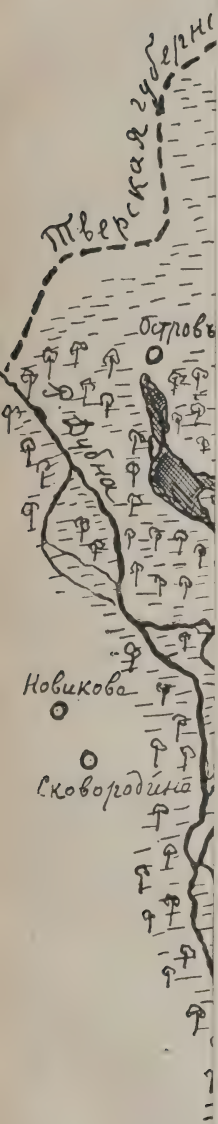 Тверская губерні
Островъ
Дубна
Новикова
Сковородина